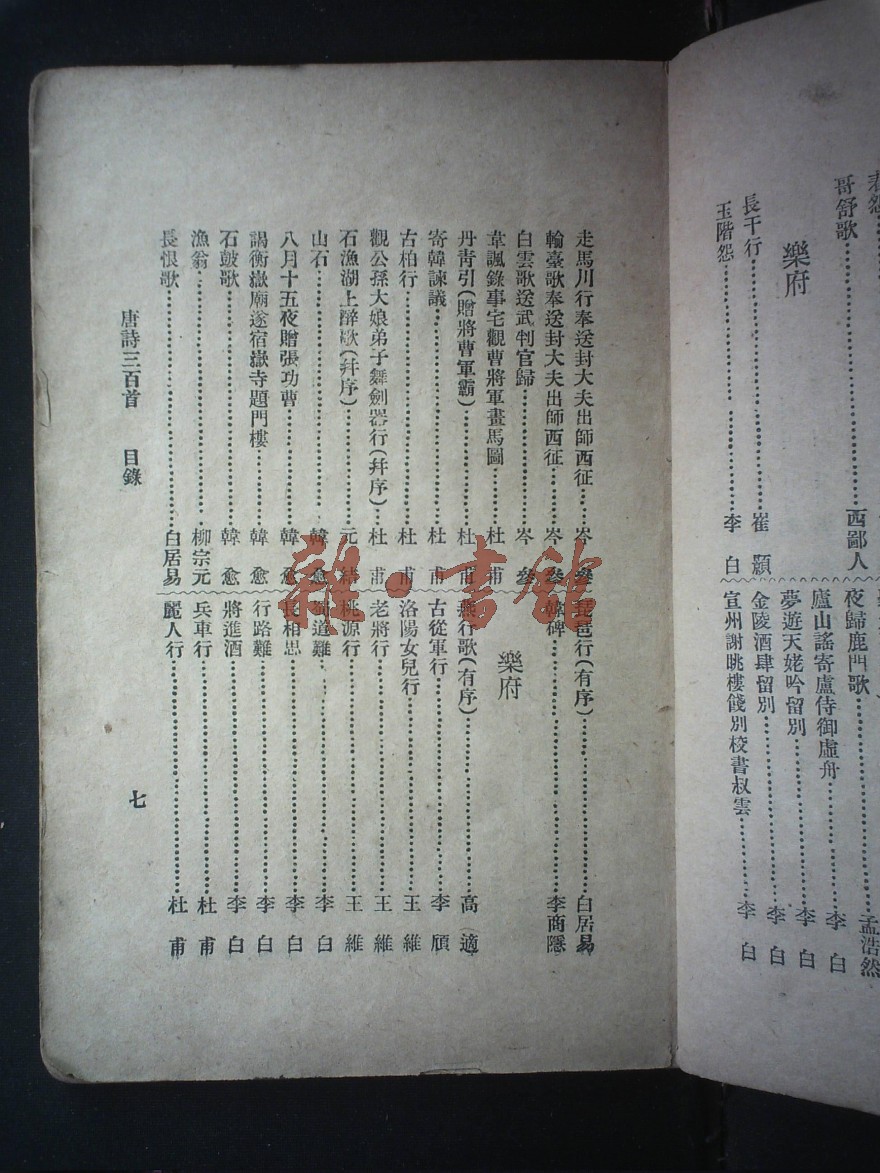 哥舒歌……西鄙人
樂府
長干行……崔顥
玉階怨……李白
夜歸鹿門歌……孟浩然
廬山謠寄盧侍御虛舟……李白
夢遊天姥吟留別……李白
金陵酒肆留別……李白
宣州謝朓樓餞別校書叔雲……李白
走馬川行奉送封大夫出師西征……岑參
輪臺歌奉送封大夫出師西征……岑參
白雲歌送武判官歸……岑參
韋諷錄事宅觀曹將軍畫馬圖……杜甫
丹青引(贈將曹軍霸)……杜甫
寄韓諫議……杜甫
古柏行……杜甫
觀公孫大娘弟子舞劍器行(幷序)……杜甫
石漁湖上醉歌(幷序)……元結
山石……韓愈
八月十五夜贈張功曹……韓愈
謁衡嶽廟遂宿嶽寺題門樓……韓愈
石鼓歌……韓愈
漁翁……柳宗元
長恨歌……白居易
琵琶行(有序)……白居易
韓碑……李商隱
樂府
燕行歌(有序)……高適
古從軍行……李頎
洛陽女兒行……王維
老將行……王維
桃源行……王維
蜀道難……李白
長相思……李白
行路難……李白
將進酒……李白
兵車行……杜甫
麗人行……杜甫
唐詩三百首 目錄
七
雜·書館